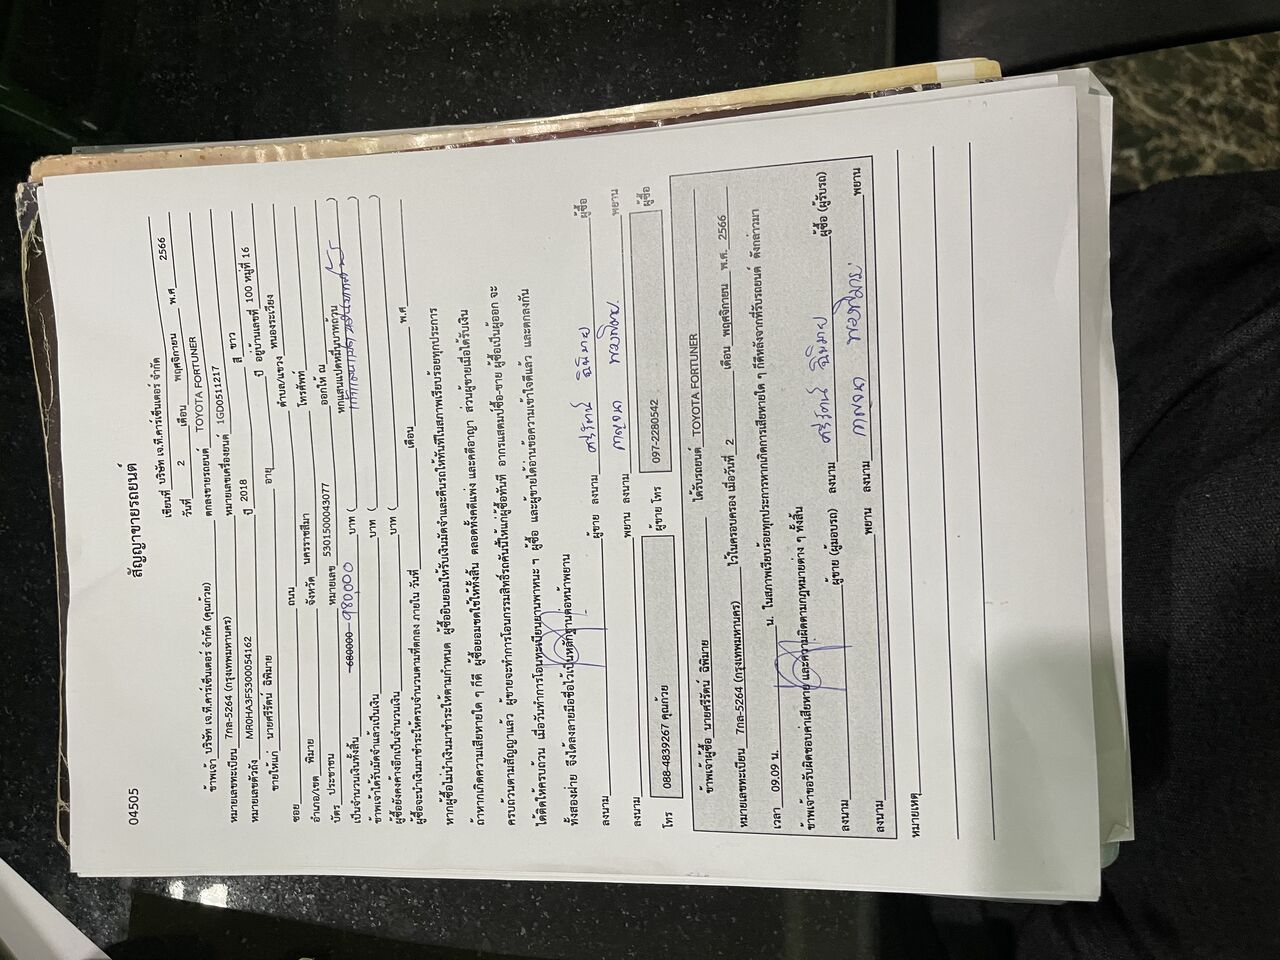 04505
สัญญาขายรถยนต์
เขียนที่ บริษัท เจ.ที.คาร์เซ็นเตอร์ จำกัด
วันที่ 2 เดือน พฤศจิกายน พ.ศ 2566
ข้าพเจ้า บริษัท เจ.ที.คาร์เซ็นเตอร์ จำกัด (คุณก้วย) ตกลงขายรถยนต์ TOYOTA FORTUNER
หมายเลขทะเบียน 7กล-5264 (กรุงเทพมหานคร) หมายเลขเครื่องยนต์ 1GD0511217
หมายเลขตัวถัง MR0HA3FS300054162 ปี 2018 สี ขาว
ขายให้แก่ นายศรีรัตน์ ฉิพิมาย อายุ ปี อยู่บ้านเลขที่ 100 หมู่ที่ 16
ซอย ถนน ตำบล/แขวง หนองระเวียง
อำเภอ/เขต พิมาย จังหวัด นครราชสีมา โทรศัพท์
บัตร ประชาชน หมายเลข 5301500043077 ออกให้ ณ
เป็นจำนวนเงินทั้งสิ้น 680000 980000 บาท ( หกแสนแปดหมื่นบาทถ้วน )
ข้าพเจ้าได้รับมัดจำแล้วเป็นเงิน บาท ( )
ผู้ซื้อยังคงค้างอีกเป็นจำนวนเงิน บาท ( )
ผู้ซื้อจะนำเงินมาชำระให้ครบจำนวนตามที่ตกลง ภายใน วันที่ เดือน พ.ศ
หากผู้ซื้อไม่นำเงินมาชำระให้ตามกำหนด ผู้ซื้อยินยอมให้รับเงินมัดจำและคืนรถให้ทันทีในสภาพเรียบร้อยทุกประการ
ถ้าหากเกิดความเสียหายใด ๆ ก็ดี ผู้ซื้อยอมชดใช้ให้ทั้งสิ้น ตลอดทั้งคดีแพ่ง และคดีอาญา ส่วนผู้ขายเมื่อได้รับเงิน
ครบถ้วนตามสัญญาแล้ว ผู้ขายจะทำการโอนกรรมสิทธิ์รถคันนี้ให้แก่ผู้ซื้อทันที อากรแสตมป์ซื้อ-ขาย ผู้ซื้อเป็นผู้ออก จะ
ได้คิดให้ครบถ้วน เมื่อวันทำการโอนทะเบียนยานพาหนะ ฯ ผู้ซื้อ และผู้ขายได้อ่านข้อความเข้าใจดีแล้ว และตกลงกัน
ทั้งสองฝ่าย จึงได้ลงลายมือชื่อไว้เป็นหลักฐานต่อหน้าพยาน
ลงนาม ผู้ขาย ลงนาม ศรีรัตน์ ฉิพิมาย ผู้ซื้อ
ลงนาม พยาน ลงนาม พยาน
โทร 088-4839267 คุณก้วย ผู้ขาย โทร 097-2280542 ผู้ซื้อ
ข้าพเจ้าผู้ซื้อ นายศรีรัตน์ ฉิพิมาย ได้รับรถยนต์ TOYOTA FORTUNER
หมายเลขทะเบียน 7กล-5264 (กรุงเทพมหานคร) ไว้ในครอบครอง เมื่อวันที่ 2 เดือน พฤศจิกายน พ.ศ. 2566
เวลา 09.09 น. น. ในสภาพเรียบร้อยทุกประการหากเกิดการเสียหายใด ๆ ก็ดีหลังจากที่รับรถยนต์ ดังกล่าวมา
ข้าพเจ้าขอรับผิดชอบค่าเสียหาย และความผิดตามกฎหมายต่าง ๆ ทั้งสิ้น
ลงนาม ผู้ขาย (ผู้มอบรถ) ลงนาม ศรีรัตน์ ฉิพิมาย ผู้ซื้อ (ผู้รับรถ)
ลงนาม พยาน ลงนาม พยาน
หมายเหตุ